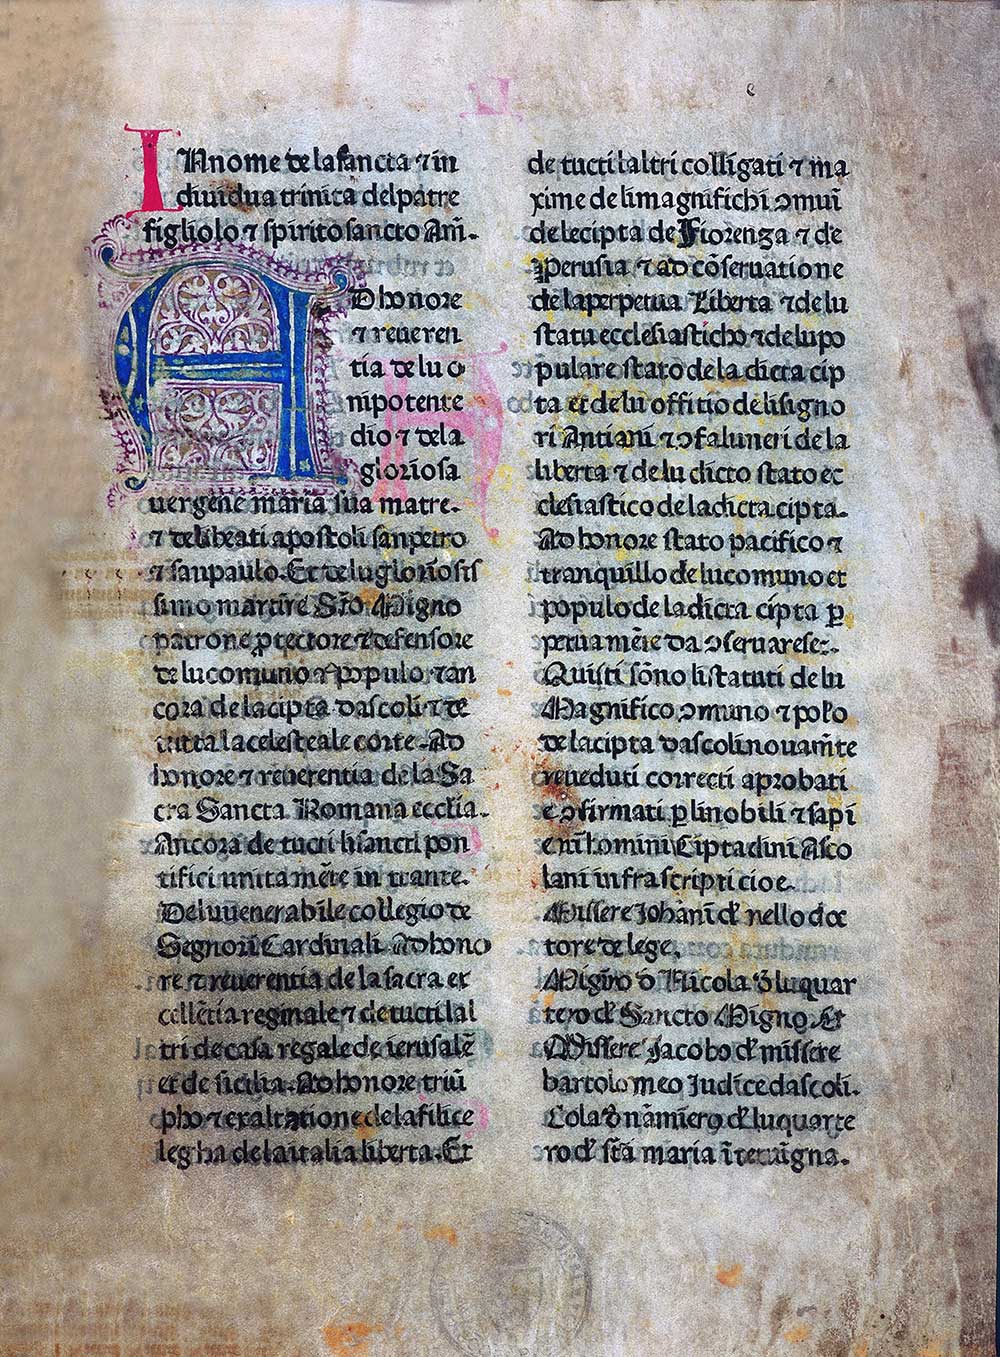 IN nome de la sancta ⁊ in
diuidua trinita del patre
figliolo ⁊ spirito sancto Am̄.
AD honore
⁊ reueren
tia de lu o
nipotente
dio ⁊ de la
gloriosa
uergene maria sua matre.
⁊ de li beati apostoli san petro
⁊ san paulo. Et de lu gloriosis
simo martire Sc̄o Migno
patrone ꝓtectore ⁊ defensore
de lu comuno ⁊ populo ⁊ an
cora de la cipta dascoli ⁊ de
tutta la celesteale corte. AD
honore ⁊ reuerentia de la Sa
cra Sancta Romana ecclīa.
Ancora de tucti li sancti pon
tifici unita mēte in trante.
De lu uenerabile collegio de
Segnori Cardinali. AD hono
re ⁊ reuerentia de la sacra ex
cellētia reginale ⁊ de tucti lal
tri de casa regale de ierusalē
et de sicilia. AD honore triū
pho ⁊ exaltatione de la filice
legha de la italia liberta. Et
de tucti laltri colligati ⁊ ma
xime de li magnifichi ꝯmuī
de le cipta de Fiorenza ⁊ de
Perusia ⁊ ad cōseruatione
de la perpetua Liberta ⁊ de lu
statu ecclesiasticho ⁊ de lu po
pulare stato de la dicta cip
ta et de lu offitio de li signo
ri Antiani ⁊ ꝯfaluneri de la
liberta ⁊ de lu dicto stato ec
clesiastico de la dicta cipta.
AD honore stato pacifico ⁊
tranquillo de lu comuno et
populo de la dicta cipta ꝑ
petua mēte da ꝯseruarese:.
Quisti sōno li statuti de lu
Magnifico ꝯmuno ⁊ pop̄lo
de la cipta dascoli nouam̄te
reueduti correcti aprobati
e ꝯfirmati ꝑ li nobili ⁊ sapi
enti homini Ciptadini Asco
lani infrascripti cioe.
Missere Johanī de nello doc
tore de lege.
Migīro de Nicola de lu quar
tero de Sancto Migno. Et
Missere Jacobo de missere
bartolomeo Judice dascoli.
Cola de nāmiero de lu quarte
ro de sc̄a maria īter uīgna.